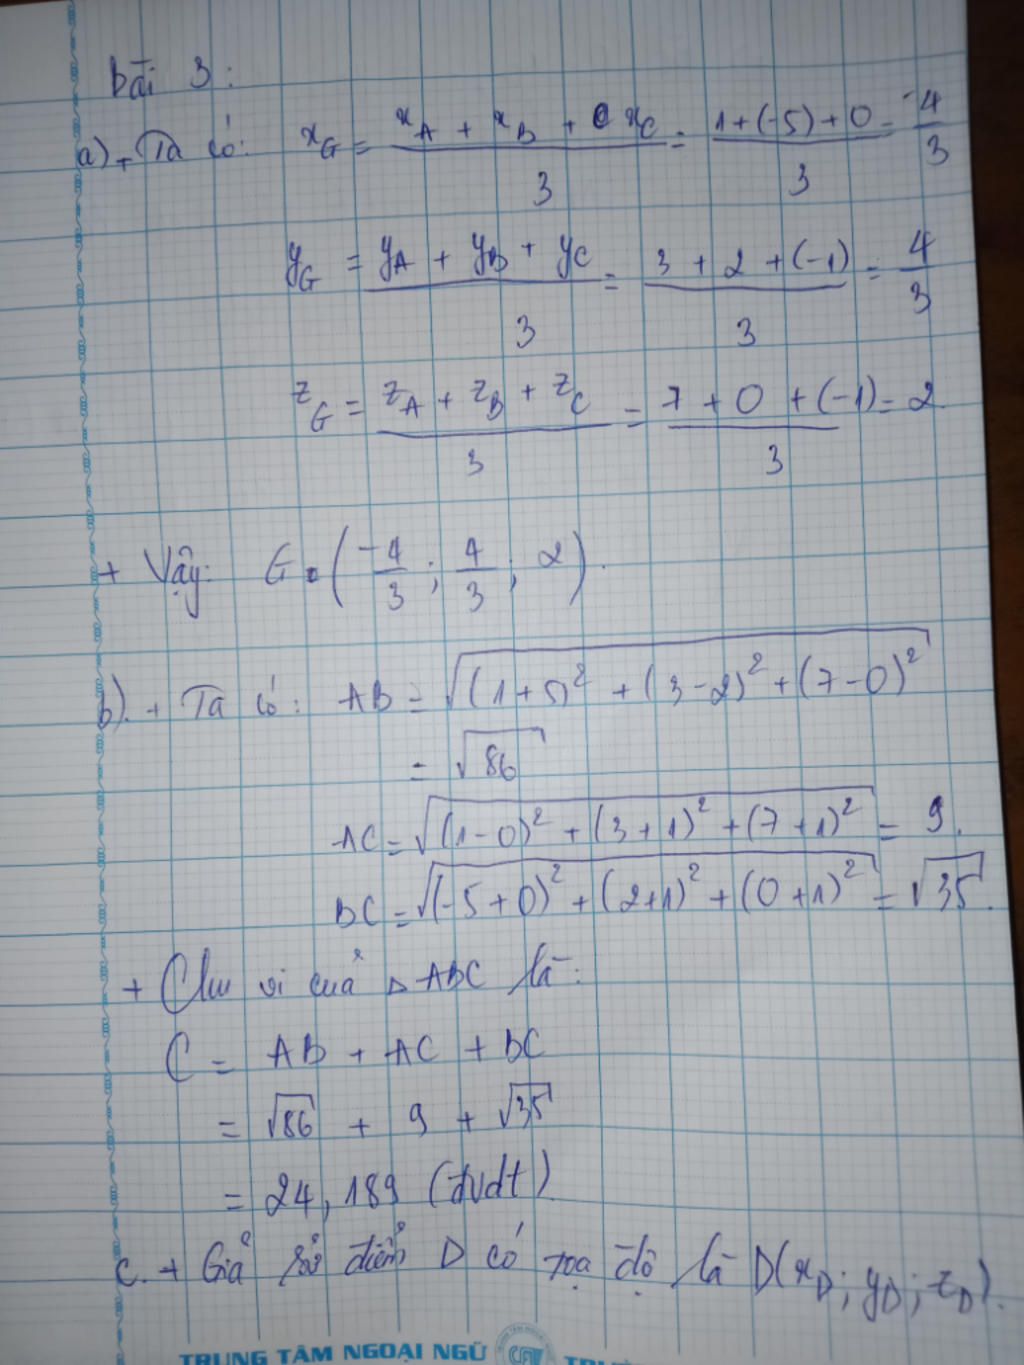 Bài 3:
a) + Ta có: x_G = (x_A + x_B + x_C)/3 = (1 + (-5) + 0)/3 = -4/3
y_G = (y_A + y_B + y_C)/3 = (3 + 2 + (-1))/3 = 4/3
z_G = (z_A + z_B + z_C)/3 = (7 + 0 + (-1))/3 = 2
+ Vậy: G (-4/3; 4/3; 2).
b). + Ta có: AB = √((1+5)² + (3-2)² + (7-0)²)
= √86
AC = √((1-0)² + (3+1)² + (7+1)²) = 9.
BC = √((-5+0)² + (2+1)² + (0+1)²) = √35.
+ Chu vi của Δ ABC là:
C = AB + AC + BC
= √86 + 9 + √35
= 24,189 (đvdt)
c. + Giả sử điểm D có tọa độ là D(x_D; y_D; z_D).
TRUNG TÂM NGOẠI NGỮ